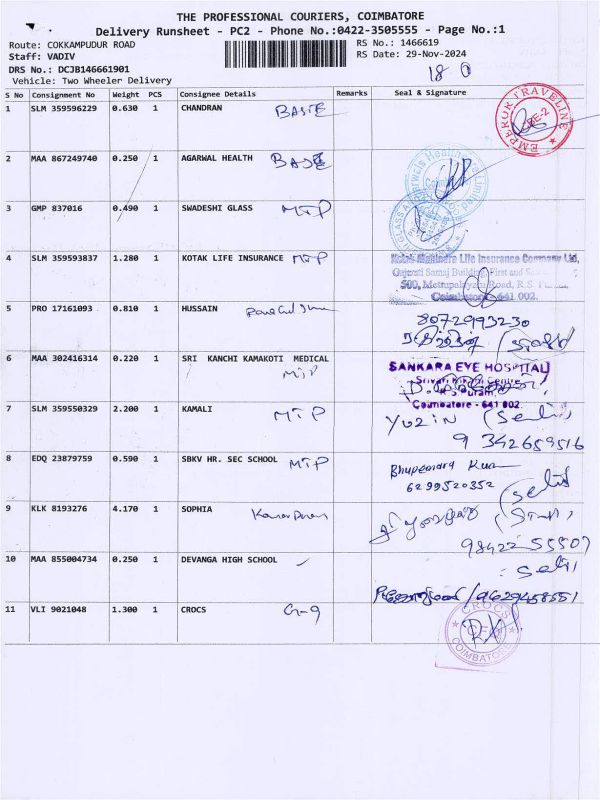 THE PROFESSIONAL COURIERS, COIMBATORE
Delivery Runsheet - PC2 - Phone No.:0422-3505555 - Page No.:1
Route: COKKAMPUDUR ROAD
RS No.: 1466619
Staff: VADIV
RS Date: 29-Nov-2024
DRS No.: DCJB146661901
Vehicle: Two Wheeler Delivery
18
S No Consignment No Weight PCS Consignee Details Remarks Seal & Signature
1 SLM 359596229 0.630 1 CHANDRAN
EMPEROR TRAVELINE
CBE-2
2 MAA 867249740 0.250 1 AGARWAL HEALTH
3 GMP 837016 0.490 1 SWADESHI GLASS MTP
4 SLM 359593837 1.280 1 KOTAK LIFE INSURANCE MTP
Kotak Mahindra Life Insurance Company Ltd,
Gujarati Samaj Building, First and
500, Mettupalayam Road, R.S.
Coimbatore - 641 002.
5 PRO 17161093 0.810 1 HUSSAIN
8072993230
6 MAA 302416314 0.220 1 SRI KANCHI KAMAKOTI MEDICAL
MTP
SANKARA EYE HOSPITAL
R.S.Puram,
Coimbatore - 641 002.
7 SLM 359550329 2.200 1 KAMALI MTP
9342659516
8 EDQ 23879759 0.590 1 SBKV HR. SEC SCHOOL MTP
6299520352
9 KLK 8193276 4.170 1 SOPHIA
98422 55507
10 MAA 855004734 0.250 1 DEVANGA HIGH SCHOOL
9629458551
11 VLI 9021048 1.300 1 CROCS G-9
CROCS
COIMBATORE